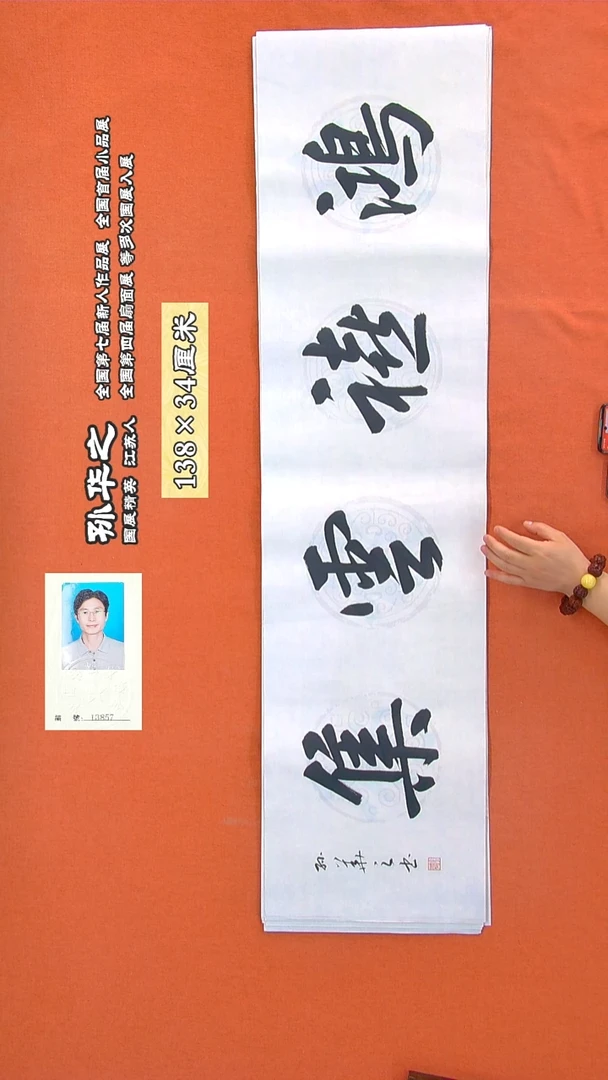 孙华之
全国第七届新人作品展 全国首届小品展
国展精英 江苏人
全国第四届扇面展 等多次国展入展
138×34厘米
13857
鴻禧雲集
孙華之书